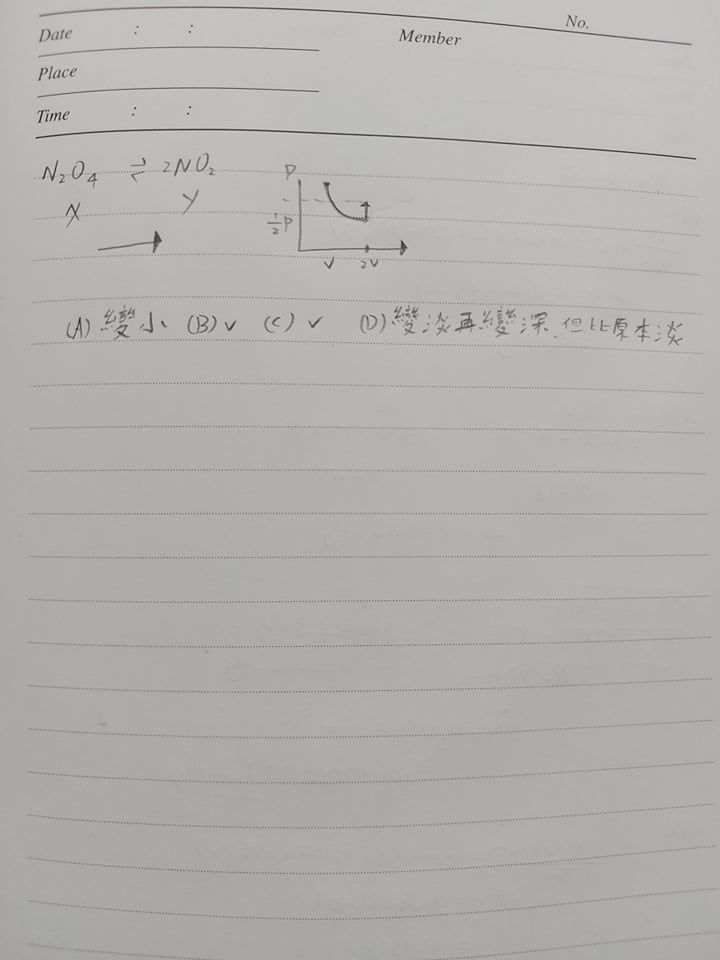 No.
Date : :
Member
Place
Time : :
N₂O₄ ⇌ 2NO₂
X Y
→
P
½P
V 2V
(A) 變小 (B) ✓ (C) ✓ (D) 變淡再變深, 但比原本淡